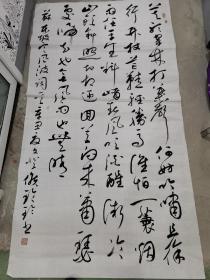 莫听穿林打叶声何妨吟啸且徐
行竹杖芒鞋轻胜马谁怕一蓑烟
雨任平生料峭春风吹酒醒微冷
山头斜照却相迎回首向来萧瑟
处归去也无风雨也无晴
苏东坡定风波词一首辛丑书